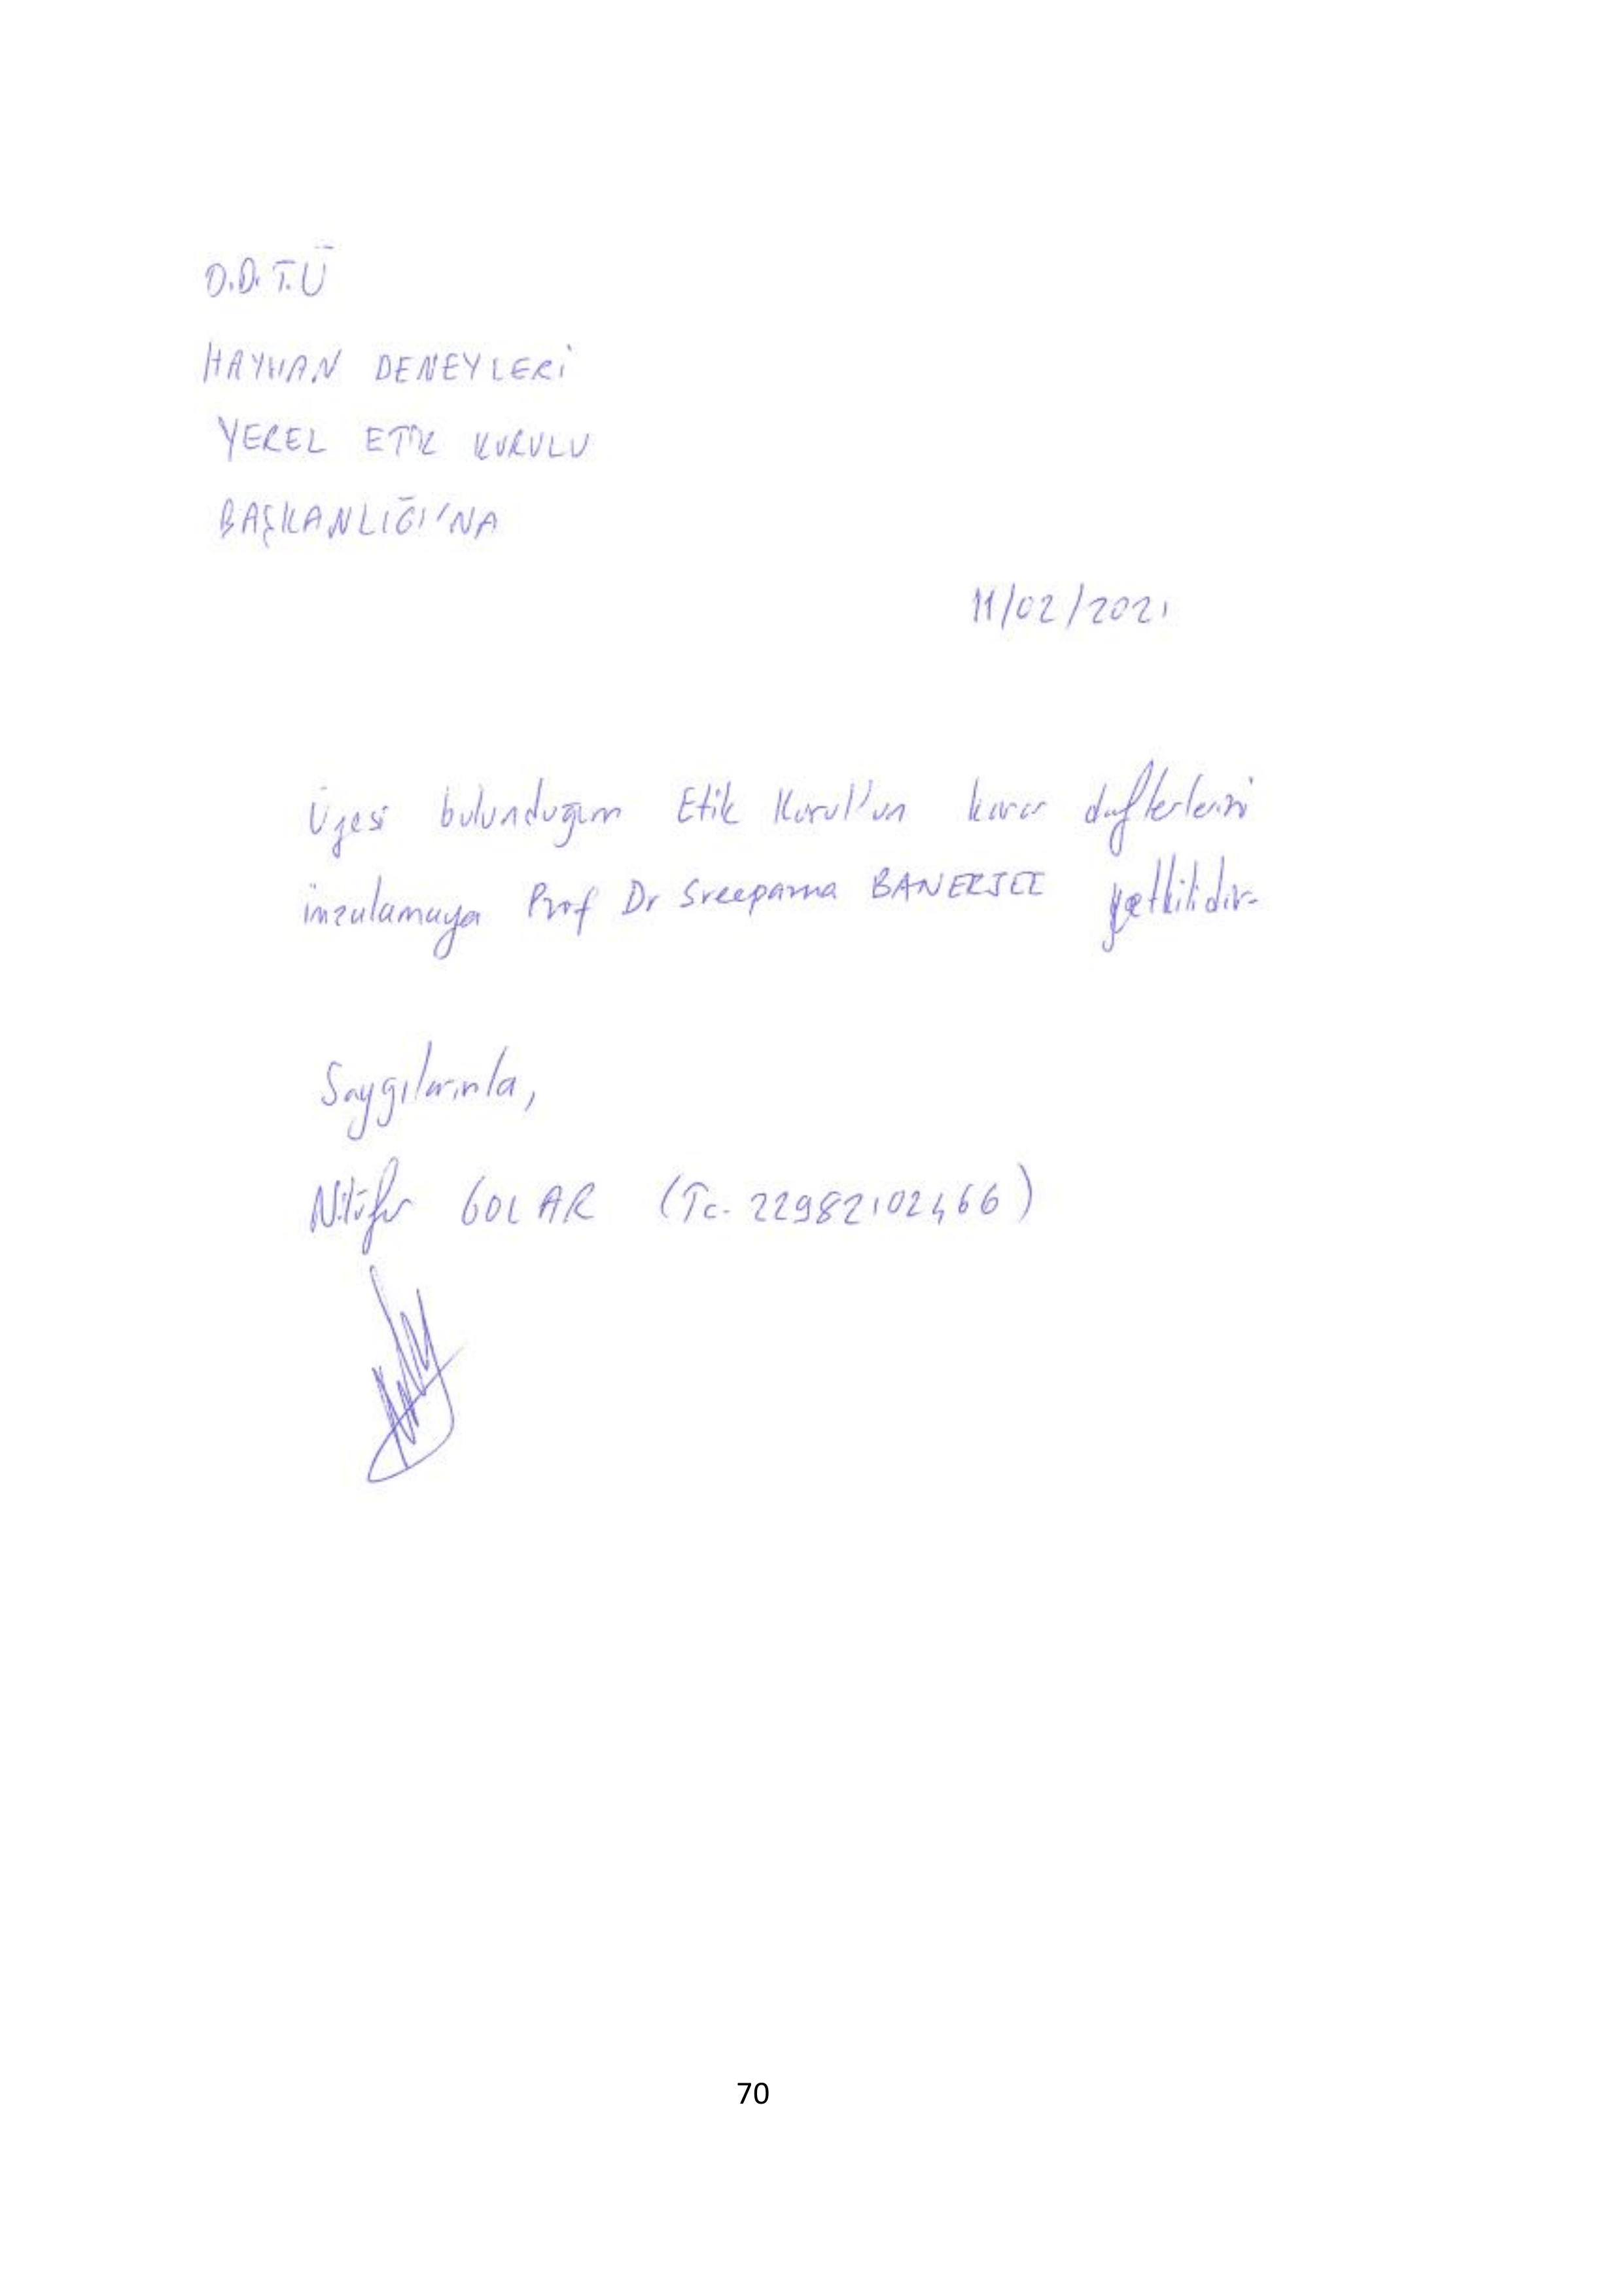 O.D.T.Ü
HAYVAN DENEYLERİ
YEREL ETİK KURULU
BAŞKANLIĞI'NA
11/02/2021
Üyesi bulunduğum Etik Kurul'un karar defterlerini
imzalamaya Prof Dr Sreeparna BANERJEE yetkilidir.
Saygılarımla,
Nilüfer GOLAR (Tc. 22982102466)
70